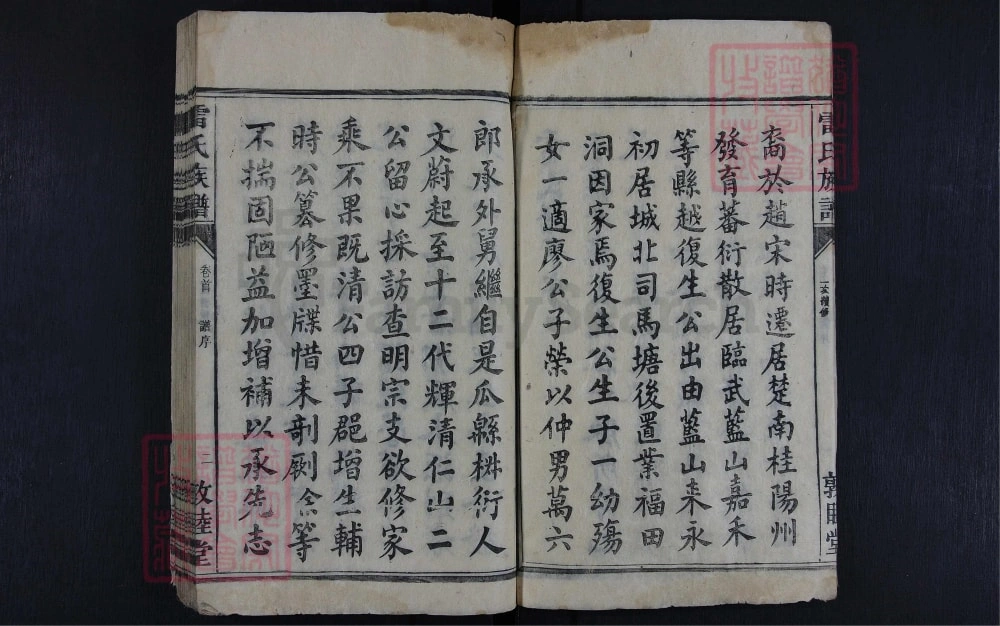 雷氏族譜
裔於趙宋時遷居楚南桂陽州
發育蕃衍散居臨武藍山嘉禾
等縣越復生公出由藍山來永
初居城北司馬塘後置業福田
洞因家焉復生公生子一幼殤
女一適廖公子榮以仲男萬六
郎承外舅繼自是瓜緜椒衍人
文蔚起至十二代輝清仁山二
公留心採訪查明宗支欲修家
乘不果既清公四子郡增生輔
時公纂修墨牒惜未剞劂余等
不揣固陋益加增補以承先志
雷氏族譜
卷首
譜序
二
敦睦堂
FamilySearch